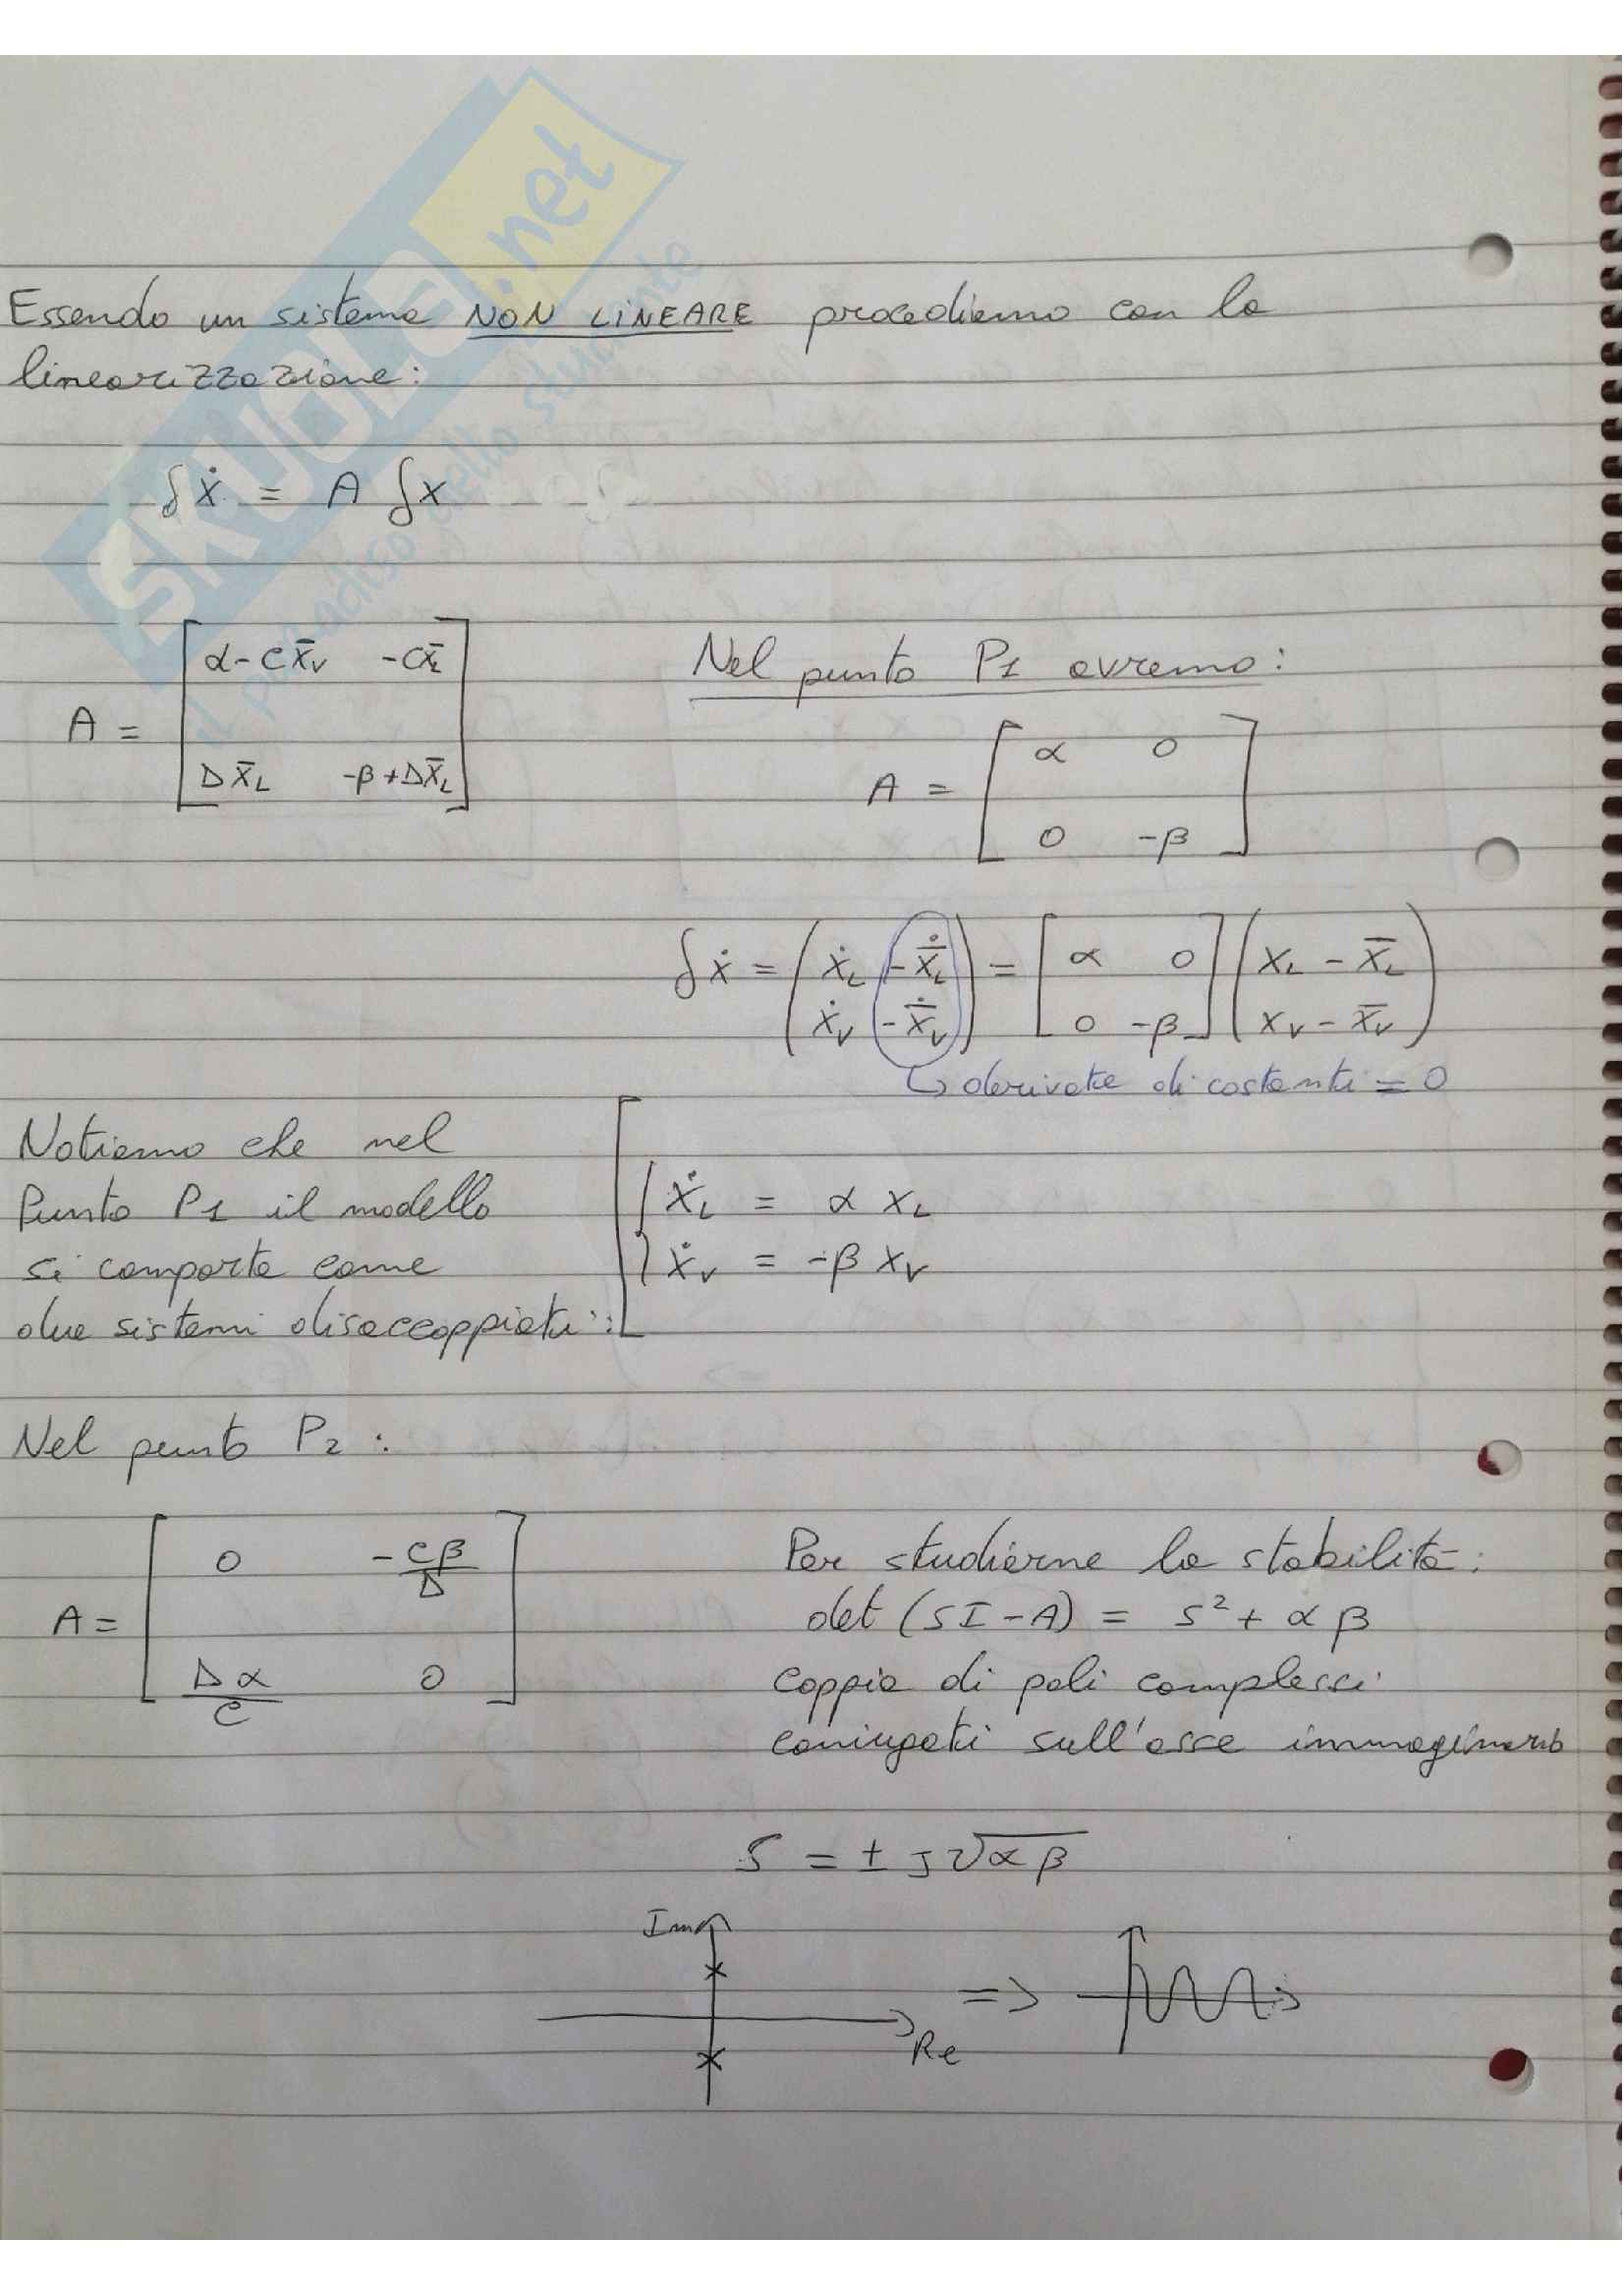 SKUOLA.net
il paradiso dello studente
Essendo un sistema NON LINEARE procediamo con la
linearizzazione:
δẋ = A δx
A = [ α - C x̄V   -C x̄L
Δ x̄L   -β + Δ x̄L ]
Nel punto P1 avremo:
A = [ α   0
0   -β ]
δẋ = ( ẋL - x̄̇L ) = [ α   0 ] ( xL - x̄L )
( ẋV - x̄̇V )   [ 0   -β ] ( xV - x̄V )
↳ derivate di costanti = 0
Notiamo che nel
Punto P1 il modello
si comporta come
due sistemi disaccoppiati:
{ ẋL = α xL
ẋV = -β xV
Nel punto P2 :
A = [ 0   -Cβ/Δ
Δα/C   0 ]
Per studiarne la stabilità:
det (SI - A) = S² + α β
coppia di poli complessi
coniugati sull'asse immaginario
S = ± J √αβ
Im
=>
Re